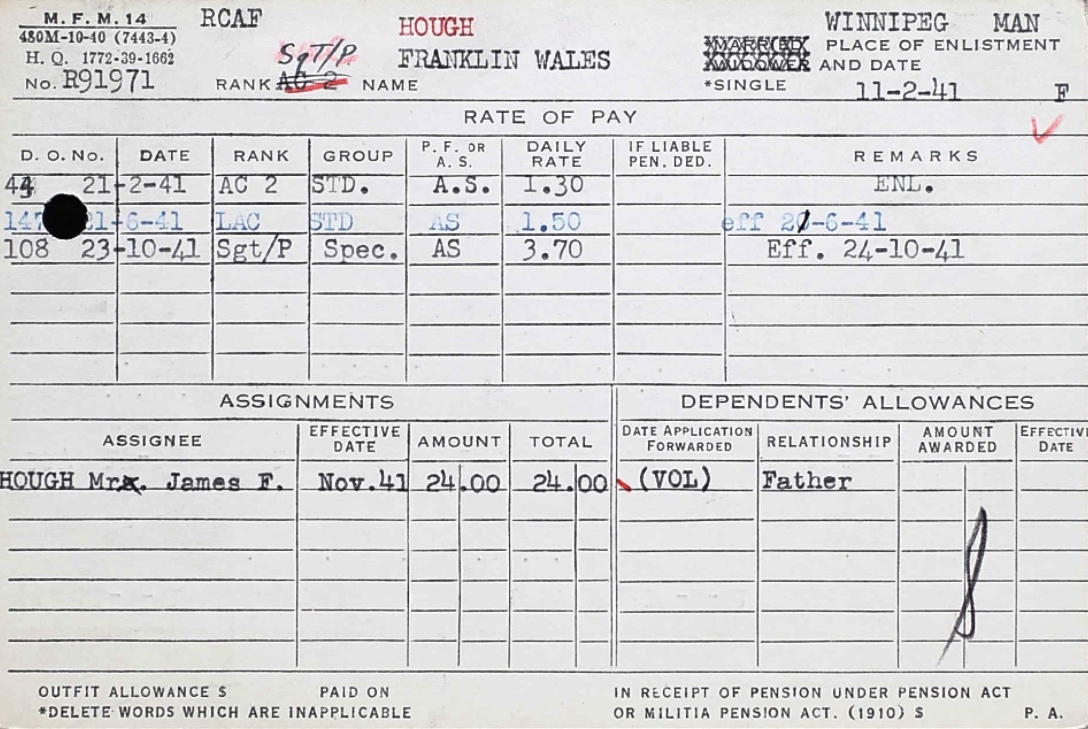 M. F. M. 14 RCAF HOUGH WINNIPEG MAN
480M-10-40 (7443-4) SgT/P. MARRIED PLACE OF ENLISTMENT
H. Q. 1772-39-1662 FRANKLIN WALES WIDOWER AND DATE
No. R91971 RANK AC 2 NAME *SINGLE 11-2-41 F
RATE OF PAY
D. O. No. DATE RANK GROUP P. F. OR A. S. DAILY RATE IF LIABLE PEN. DED. REMARKS
21-2-41 AC 2 STD. A.S. 1.30 ENL.
147 21-6-41 LAC STD AS 1.50 eff -6-41
108 23-10-41 Sgt/P Spec. AS 3.70 Eff. 24-10-41
ASSIGNMENTS DEPENDENTS' ALLOWANCES
ASSIGNEE EFFECTIVE DATE AMOUNT TOTAL DATE APPLICATION FORWARDED RELATIONSHIP AMOUNT AWARDED EFFECTIVE DATE
HOUGH Mr. James F. Nov.41 24.00 24.00 (VOL) Father
OUTFIT ALLOWANCE $ PAID ON IN RECEIPT OF PENSION UNDER PENSION ACT
*DELETE WORDS WHICH ARE INAPPLICABLE OR MILITIA PENSION ACT. (1910) $ P. A.